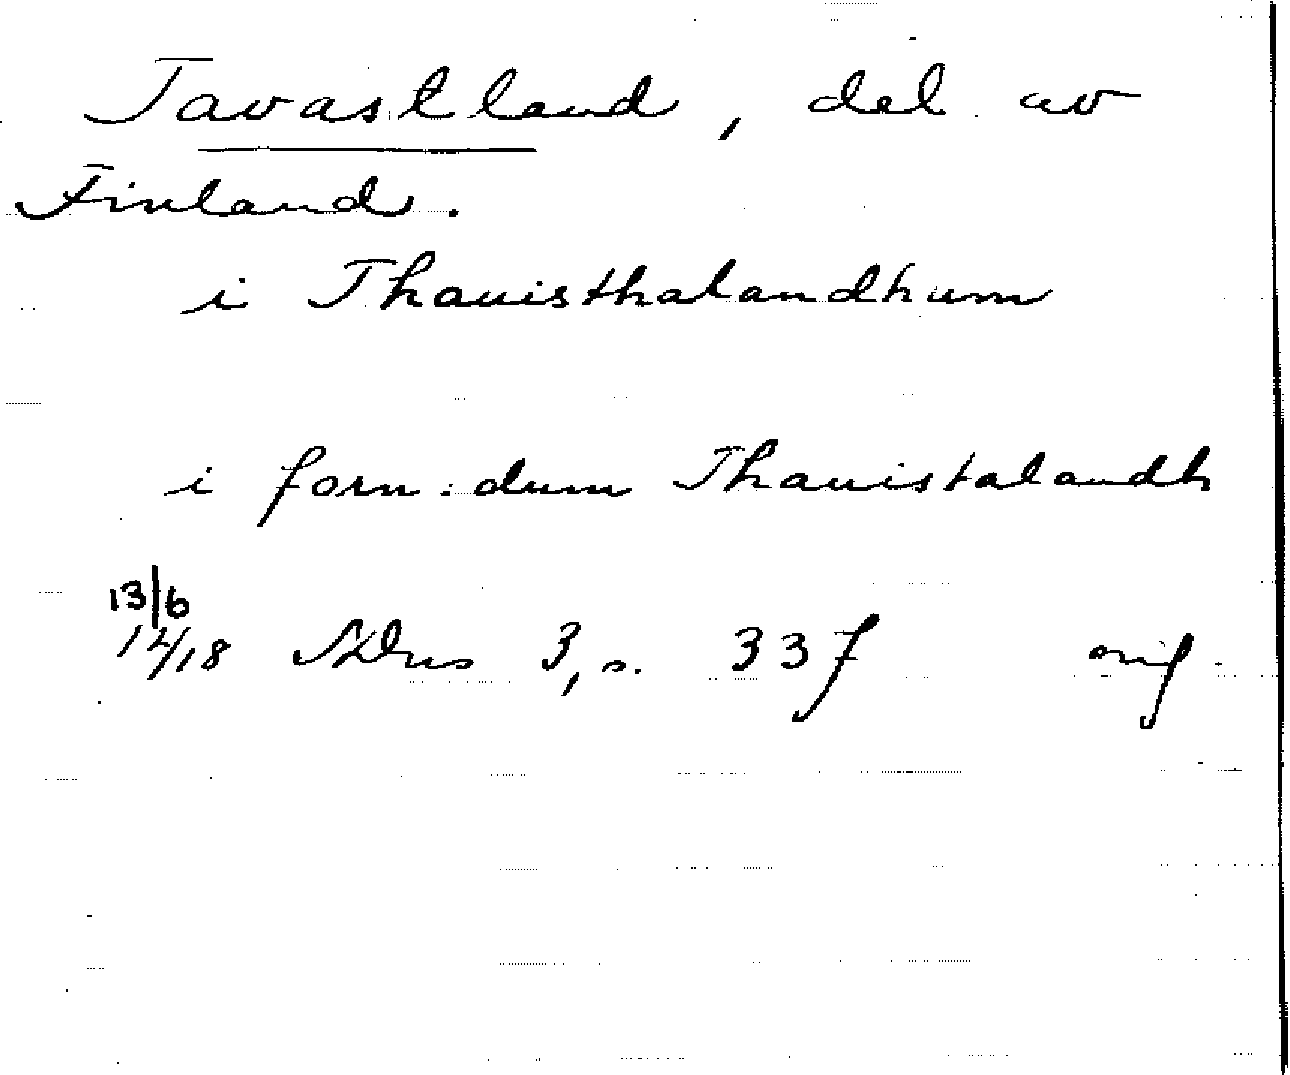 Tavastland, del av
Finland.
i Thauisthalandhum
i forn:dum Thauistalandh
13/6
1418 SDns 3, s. 33f orig